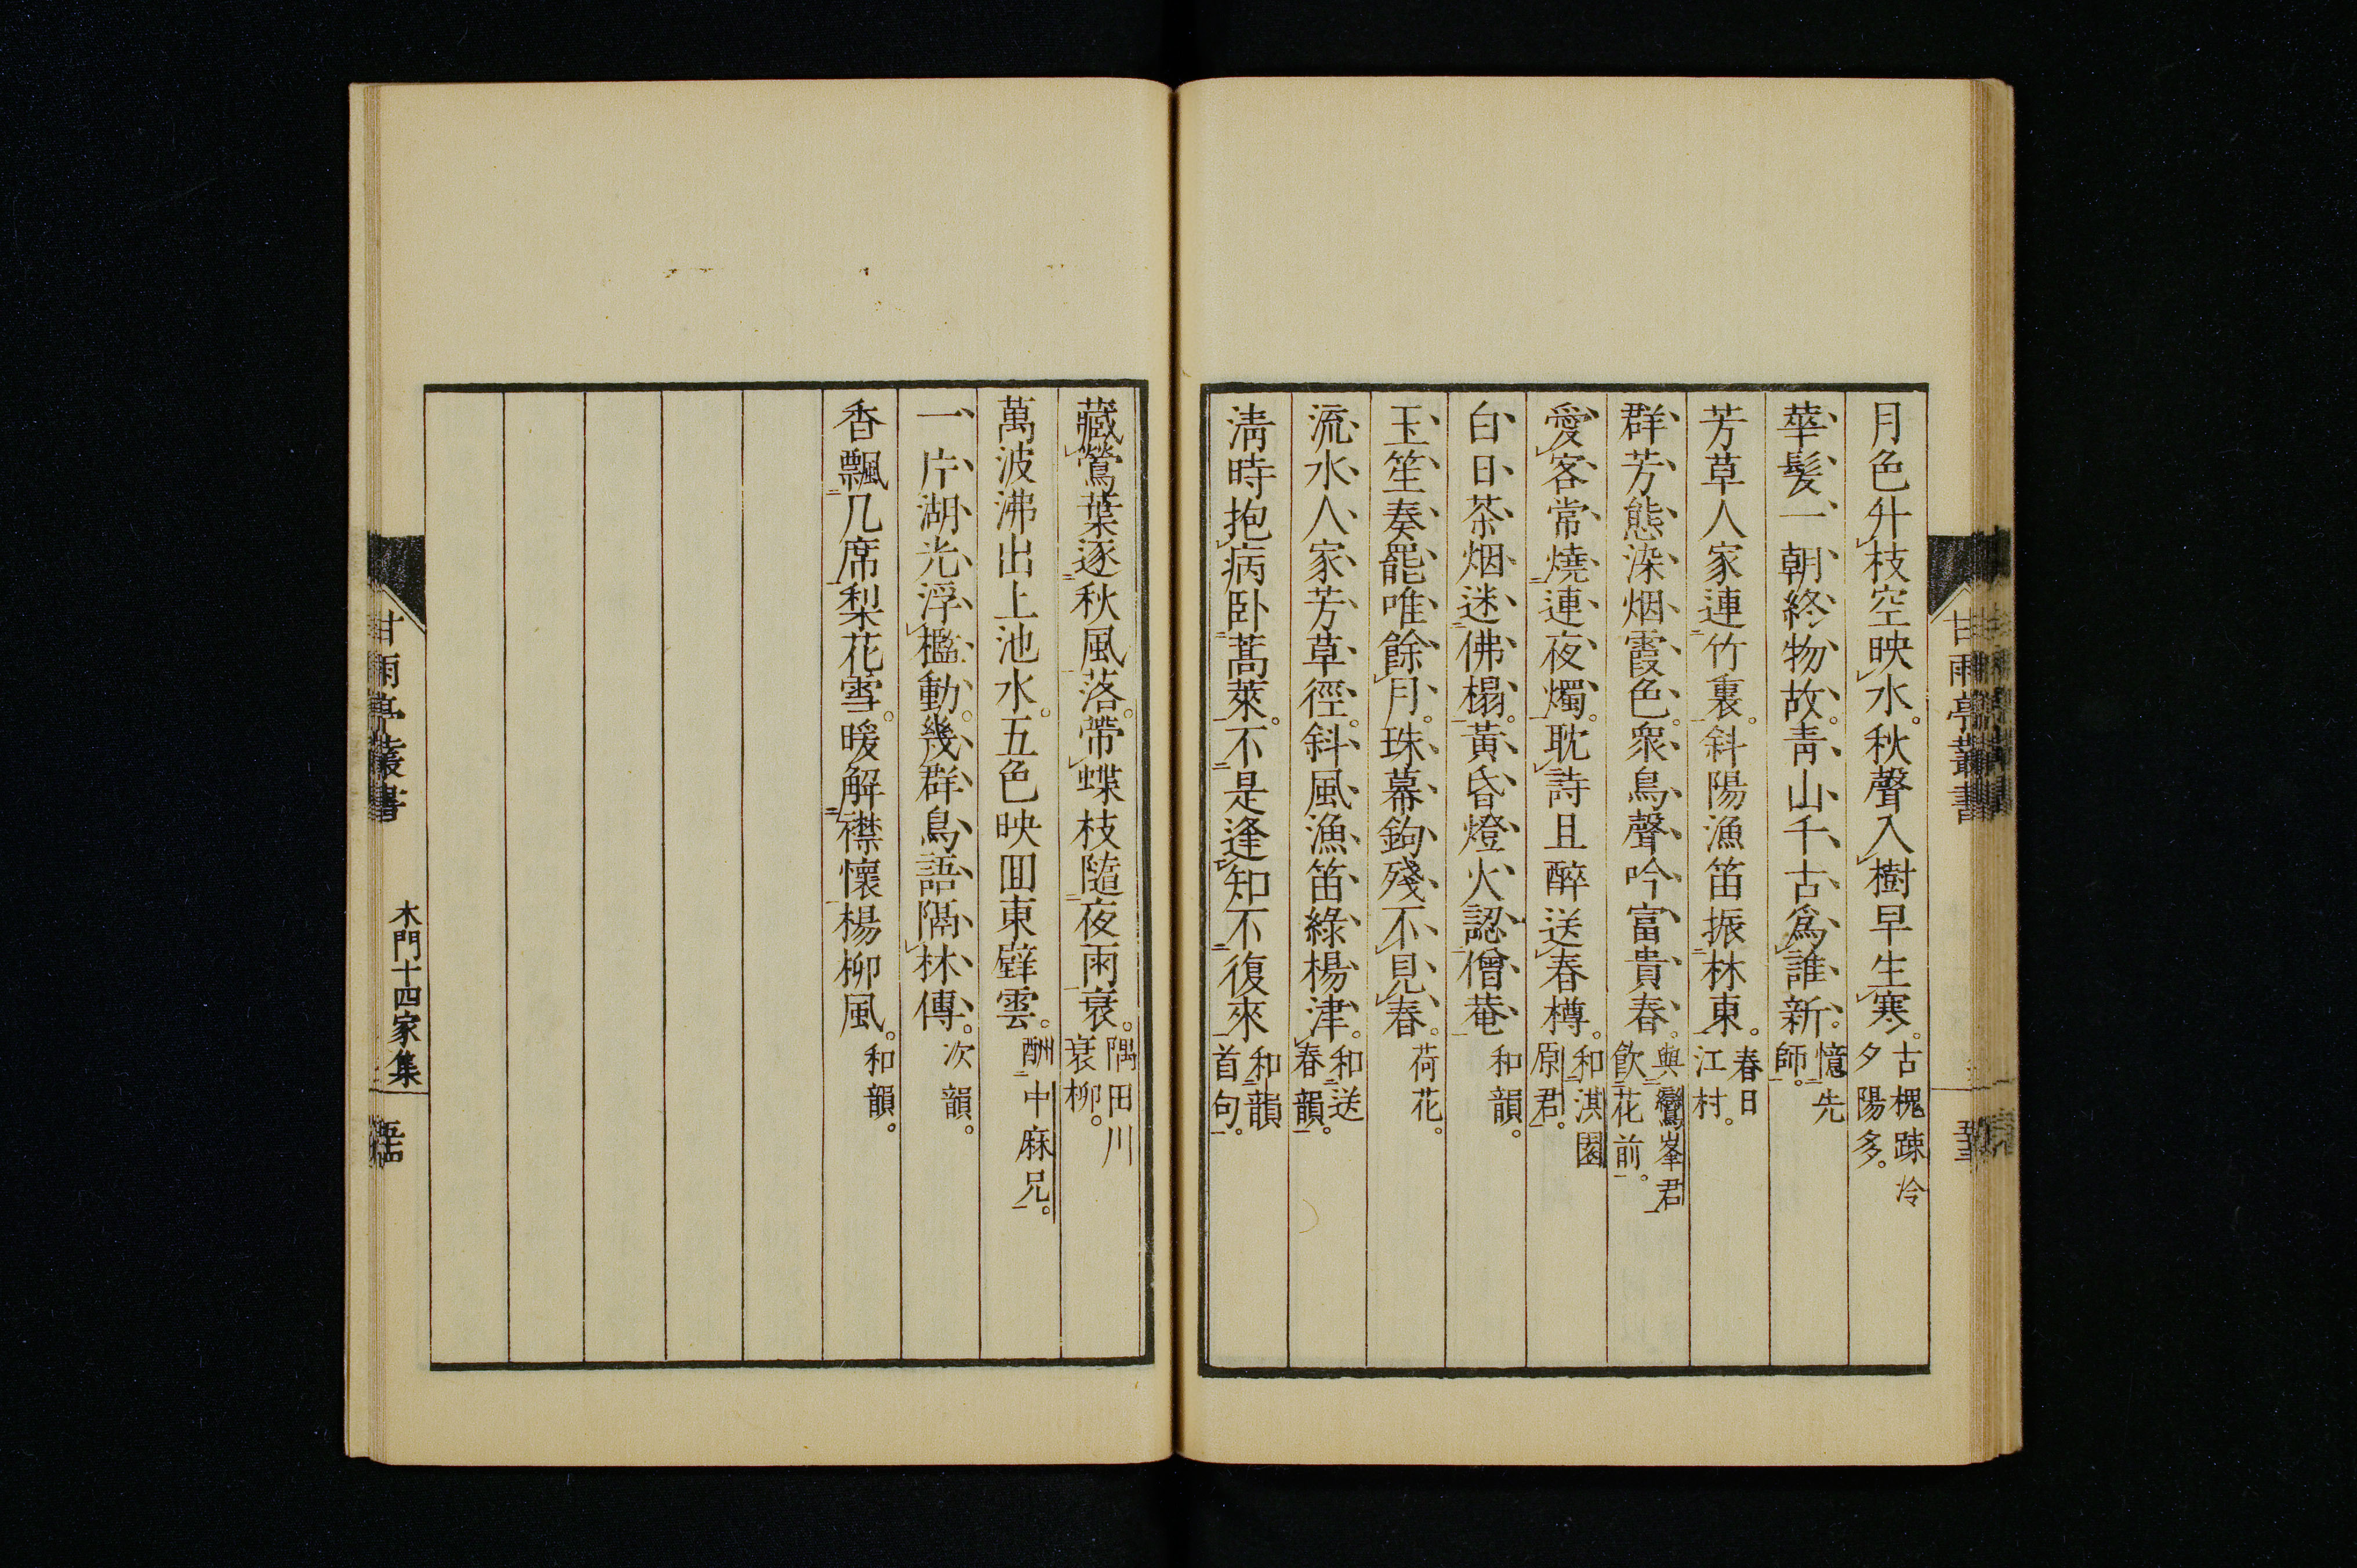 月色升枝空映水。秋聲入樹早生寒。古槐踈冷夕陽多。
華髮一朝終物故。青山千古爲誰新。憶先師。
芳草人家連竹裏。斜陽漁笛振林東。春日江村。
群芳態染烟霞色。衆鳥聲吟富貴春。與鸞峯君飮花前。
愛客常燒連夜燭。耽詩且醉送春樽。和淇園原君。
白日茶烟迷佛榻。黃昏燈火認僧菴 和韻。
玉笙奏罷唯餘月。珠幕鉤殘不見春。荷花。
流水人家芳草徑。斜風漁笛綠楊津。和送春韻。
淸時抱病臥蒿萊。不是逢知不復來 和韻首句。
甘雨亭叢書
藏鶯葉逐秋風落。帶蝶枝隨夜雨衰。隅田川衰柳。
萬波沸出上池水。五色映回東壁雲。酬中麻兄。
一片湖光浮檻動。幾群鳥語隔林傳。次韻。
香飄几席梨花雪。暖解襟懷楊柳風。和韻。
甘雨亭叢書
木門十四家集